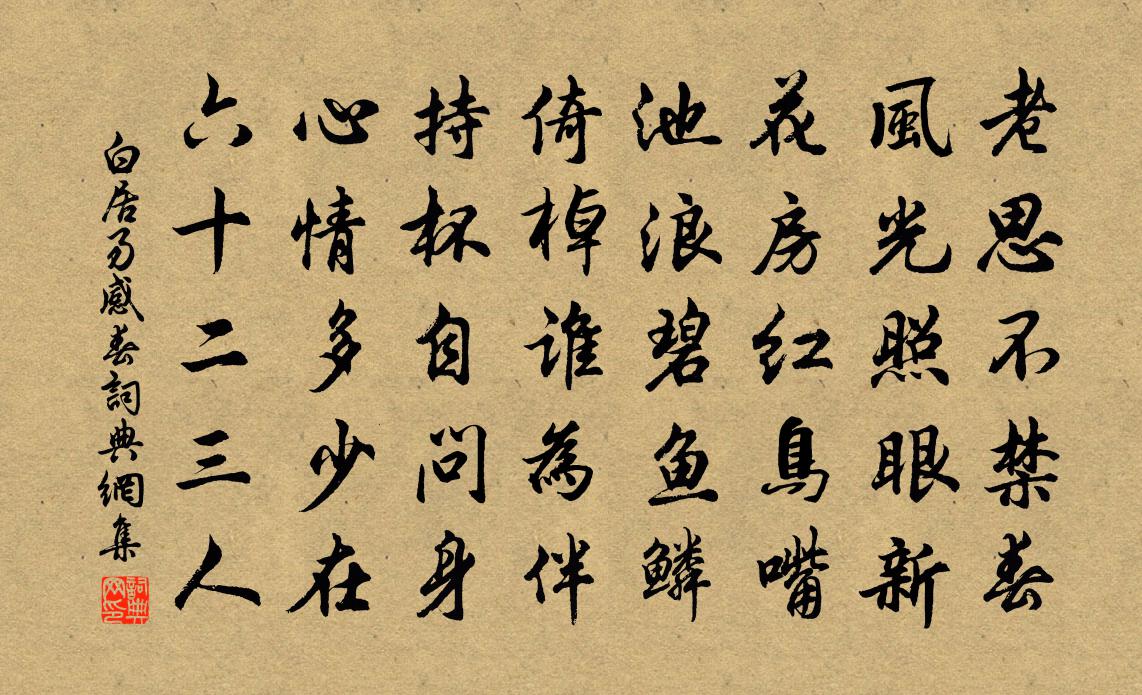 老思不禁春
風光照眼新
花房紅鳥嘴
池浪碧魚鱗
倚棹誰為伴
持杯自問身
心情多少在
六十二三人
白居易感春詞典網集
詞典网印